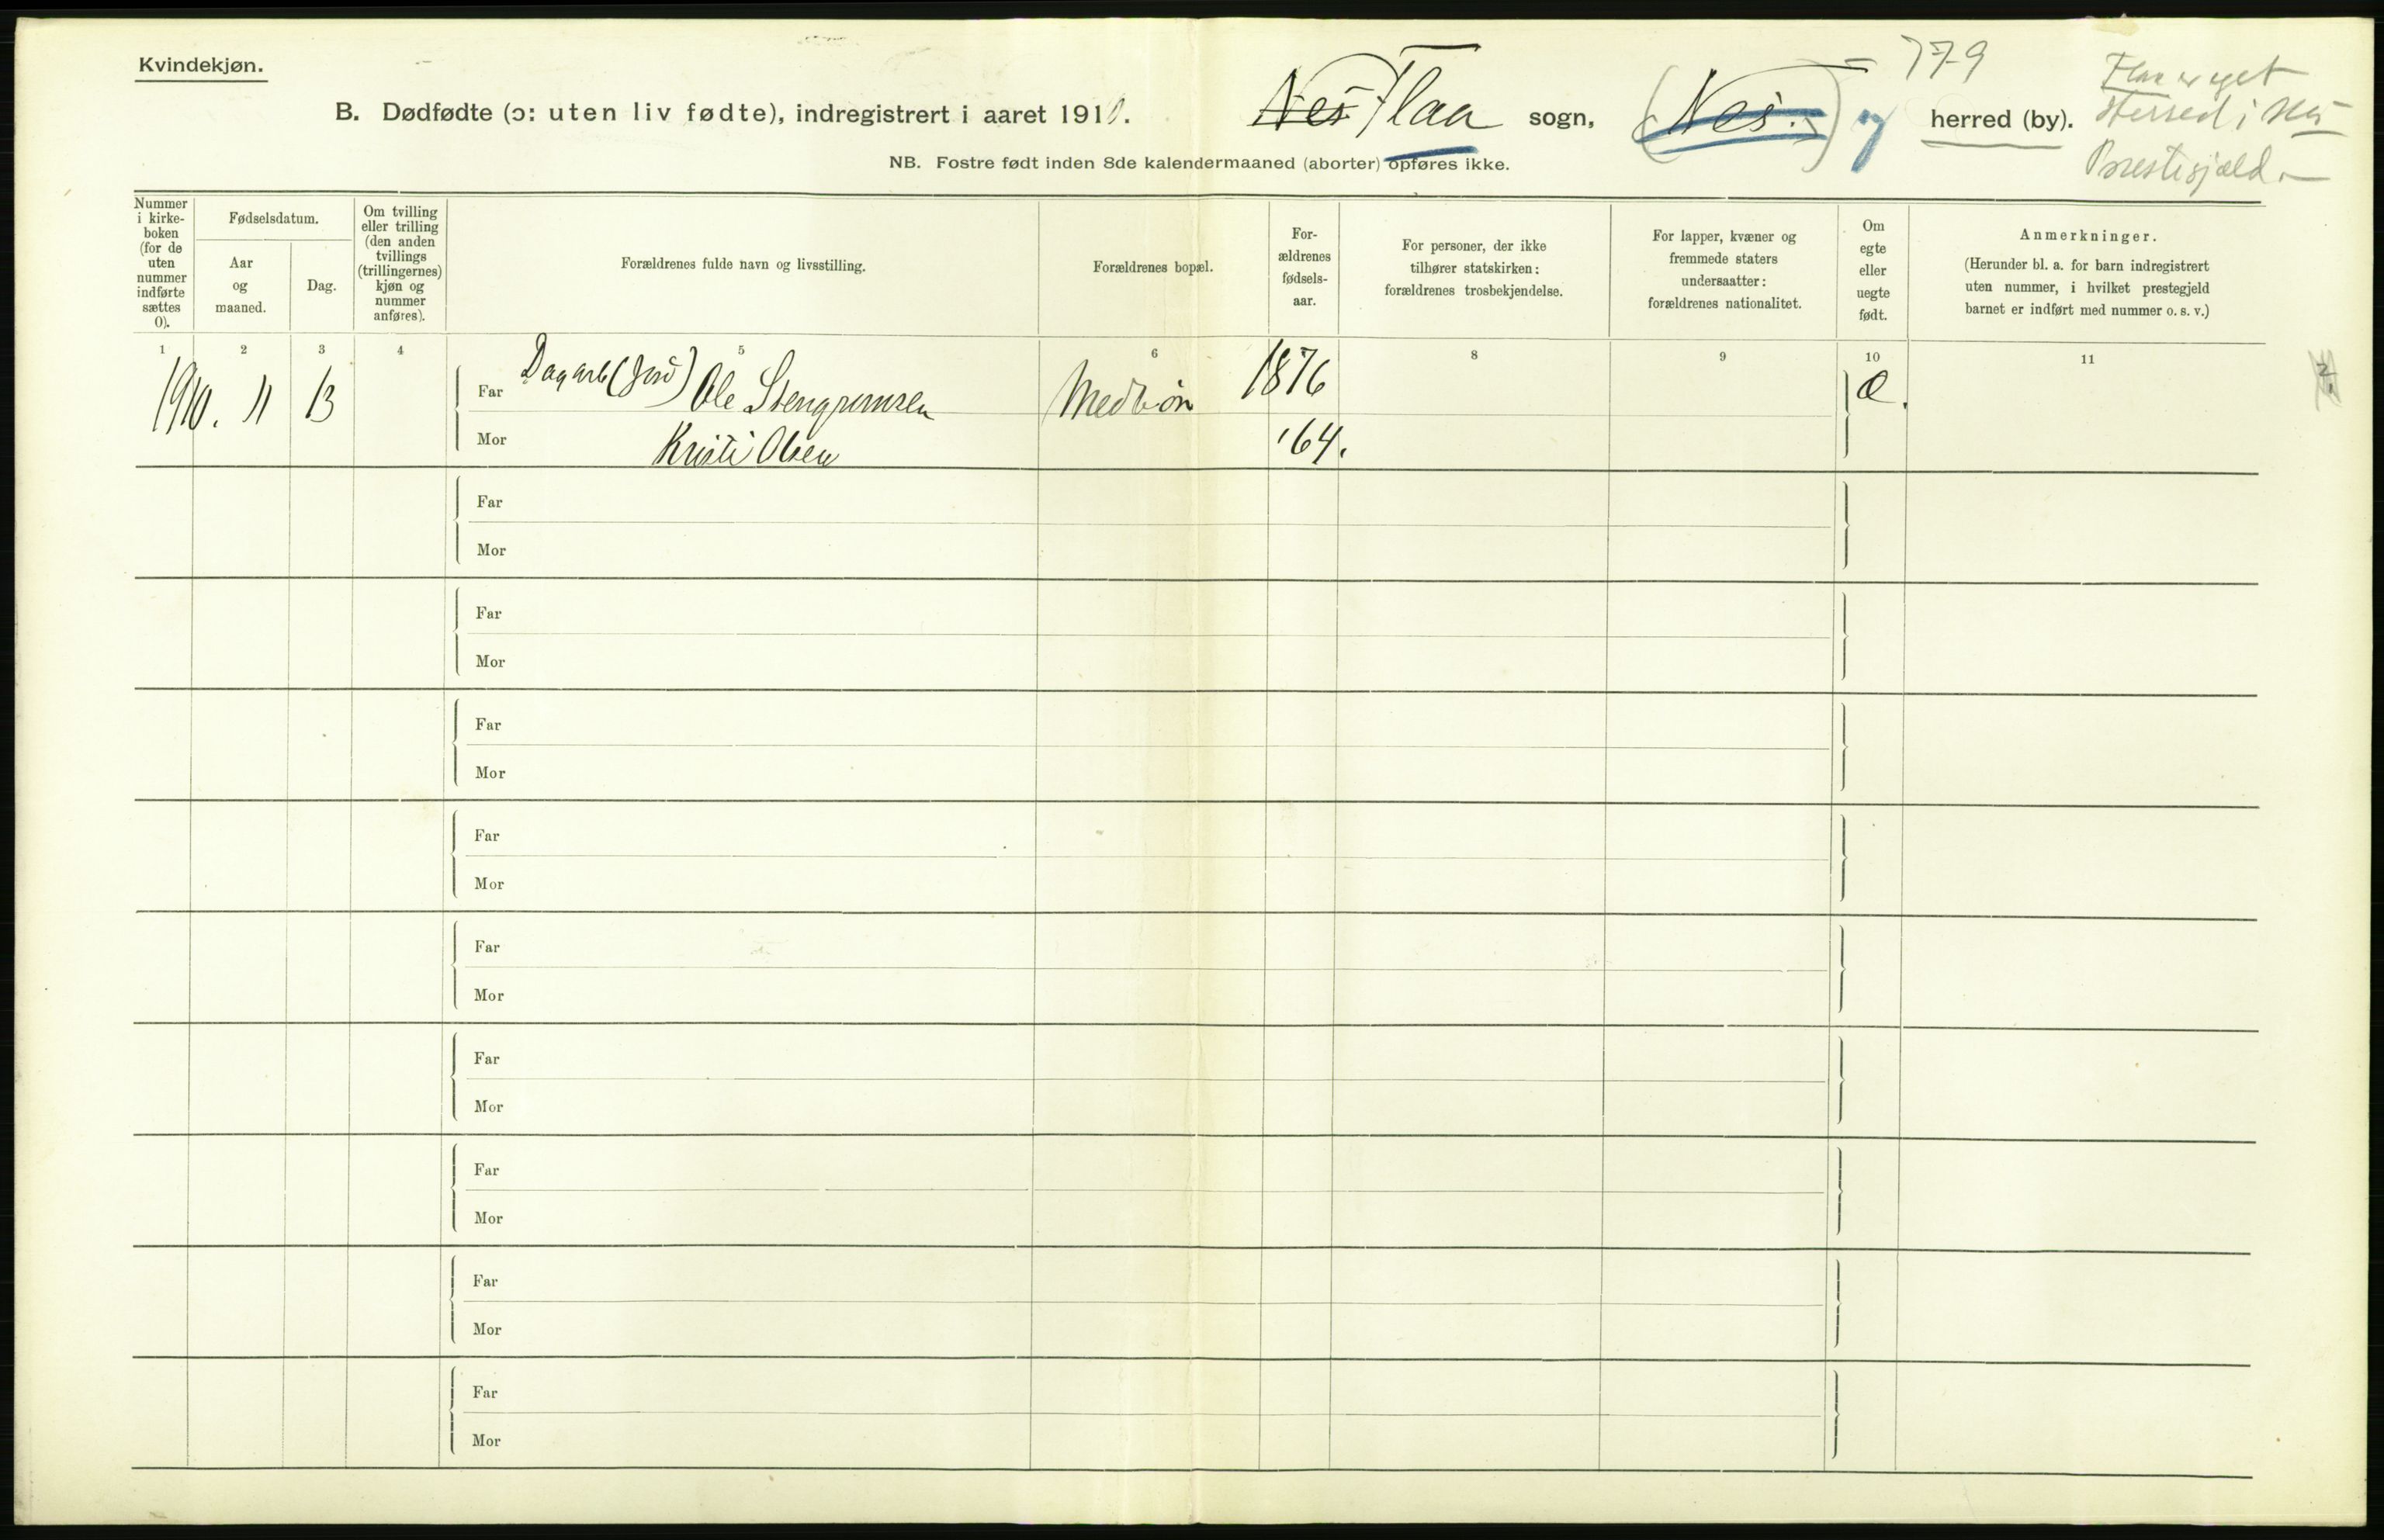 Kvindekjøn.
779
B. Dødfødte (ɔ: uten liv fødte), indregistrert i aaret 1910. Nes Flaa sogn, (Nes.) herred (by).
Herred i Nes
Prestegjæld.
NB. Fostre født inden 8de kalendermaaned (aborter) opføres ikke.
Nummer i kirke-boken (for de uten nummer indførte sættes 0).
Fødselsdatum.
Aar og maaned.
Dag.
Om tvilling eller trilling (den anden tvillings (trillingernes) kjøn og nummer anføres).
Forældrenes fulde navn og livsstilling.
Forældrenes bopæl.
For-ældrenes fødsels-aar.
For personer, der ikke tilhører statskirken: forældrenes trosbekjendelse.
For lapper, kvæner og fremmede staters undersaatter: forældrenes nationalitet.
Om egte eller uegte født.
Anmerkninger.
(Herunder bl. a. for barn indregistrert uten nummer, i hvilket prestegjeld barnet er indført med nummer o. s. v.)
1 2 3 4 5 6 8 9 10 11
1910. 11 13 Far Dagarb (Jord) Ole Stengrimsen Medbøn 1876 Æ.
Mor Kristi Olsen '64.
Far
Mor
Far
Mor
Far
Mor
Far
Mor
Far
Mor
Far
Mor
Far
Mor
Far
Mor
Far
Mor